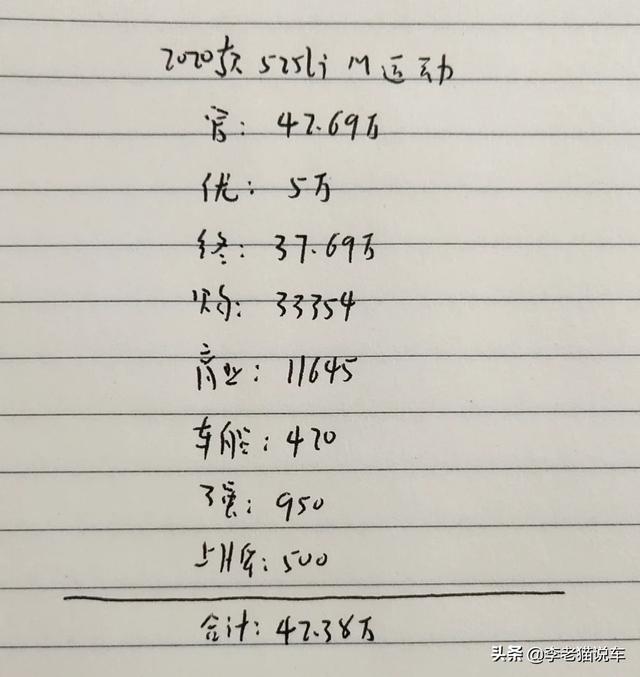 2020款 525li M运动
官: 42.69万
优: 5万
终: 37.69万
购: 33354
商业: 11645
车船: 420
交强: 950
上牌: 500
合计: 42.38万
头条 @李老猫说车